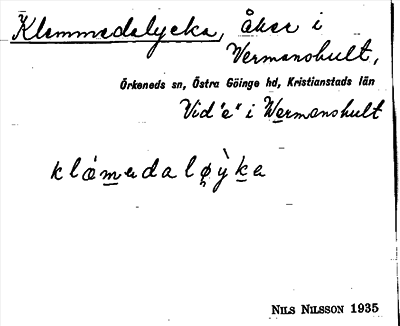 Klammedalycka, åker i
Vermanshult,
Örkeneds sn, Östra Göinge hd, Kristianstads län
Vid "e" i Wermanshult
klámadalø̨ỳka
NILS NILSSON 1935